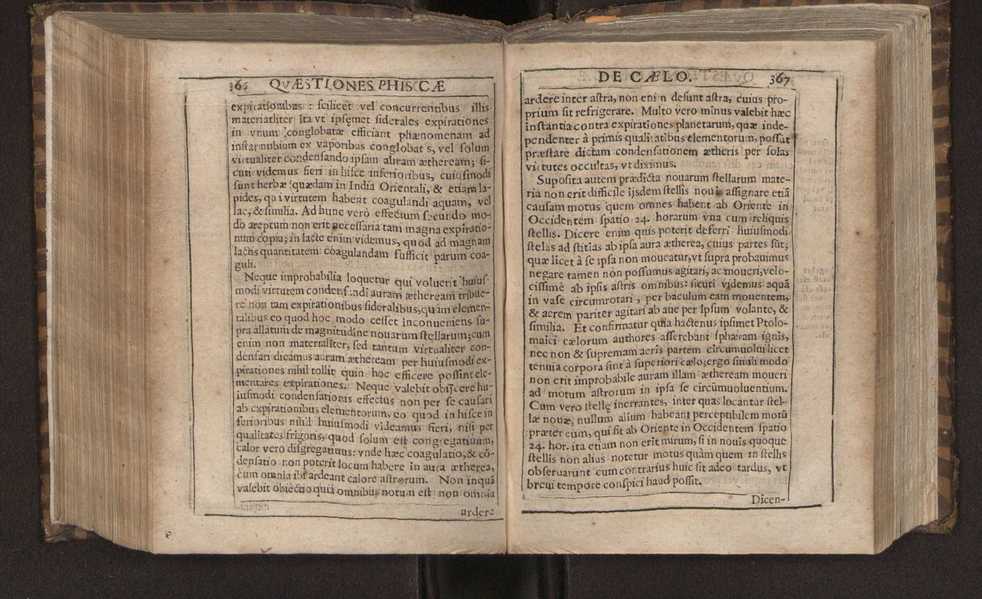 366 QVÆSTIONES PHISICÆ
expirationibus: scilicet vel concurrentibus illis
materialiter ita vt ipsęmet siderales expirationes
in vnum conglobatæ efficiant phænomenam ad
instar nubium ex vaporibus conglobat s, vel solum
virtualiter condensando ipsam auram ætheream; si-
cuti videmus fieri in hisce inferioribus, cuiusmodi
sunt herbæ quædam in India Orientali, & etiam la-
pides, qui virtutem habent coagulandi aquam, vel
lac, & similia. Ad hunc verò effectum secundo mo-
do acceptum non erit necessaria tam magna expiratio-
num copia; in lacte enim videmus, quod ad magnam
lactis quantitatem coagulandam sufficit parum coa-
guli.
Neque improbabilia loquetur qui voluerit huius-
modi virtutem condensandi auram ætheream tribue-
re non tam expirationibus sideralibus, quàm elemen-
talibus eo quod hoc modo cesset inconueniens su-
pra allatum de magnitudine nouarum stellarum; cum
enim non materialiter, sed tantum virtualiter con-
densari dicamus auram ætheream per huiusmodi ex-
pirationes nihil tollit quin hoc efficere possint ele-
mentares expirationes. Neque valebit obijcere hu-
iusmodi condensationis effectus non per se causari
ab expirationibus elementorum, eo quod in hisce in-
ferioribus nihil huiusmodi videamus fieri, nisi per
qualitates frigoris, quod solum est congregatiuum,
calor verò disgregatiuus: vnde hæc coagulatio, & cō-
densatio non poterit locum habere in aura ætherea,
cum omnia ibi ardeant calore astrorum. Non inquā
valebit obiectio quia omnibus notum est non omnia
ardere
DE CÆLO. 367
ardere inter astra, non enim desunt astra, cuius pro-
prium sit refrigerare. Multo verò minus valebit hæc
instantia contra expirationes planetarum, quæ inde-
pendenter à primis qualitatibus elementorum, possūt
præstare dictam condensationem ætheris per solas
virtutes occultas, vt diximus.
Suposita autem prædicta nouarum stellarum mate-
ria non erit difficile ijsdem stellis nouis assignare etiā
causam motus quem omnes habent ab Oriente in
Occidentem spatio 24. horarum vna cum reliquis
stellis. Dicere enim quis poterit deferri huiusmodi
stelas adstitias ab ipsa aura ætherea, cuius partes sūt;
quæ licet à se ipsa non moueatur, vt supra probauimus
negare tamen non possumus agitari, ac moueri, velo-
cissimè ab ipsis astris omnibus: sicuti videmus aquā
in vase circumrotari, per baculum eam mouentem,
& aerem pariter agitari ab aue per ipsum volante, &
similia. Et confirmatur quia hactenus ipsimet Ptolo-
maici cælorum authores asserebant sphæram ignis,
nec non & supremam aeris partem circumuolui licet
tenuia corpora sint à superiori cælo; ergo simili modo
non erit improbabile auram illam ætheream moueri
ad motum astrorum in ipsa se circumuoluentium.
Cum vero stellę inerrantes, inter quas locantur stel-
læ nouæ, nullum alium habeant perceptibilem motū
præter eum, qui fit ab Oriente in Occidentem spatio
24. hor. ita etiam non erit mirum, si in nouis quoque
stellis non alius notetur motus quàm quem in stellis
obseruarunt cum contrarius huic sit adeo tardus, vt
breui tempore conspici haud possit.
Dicen-